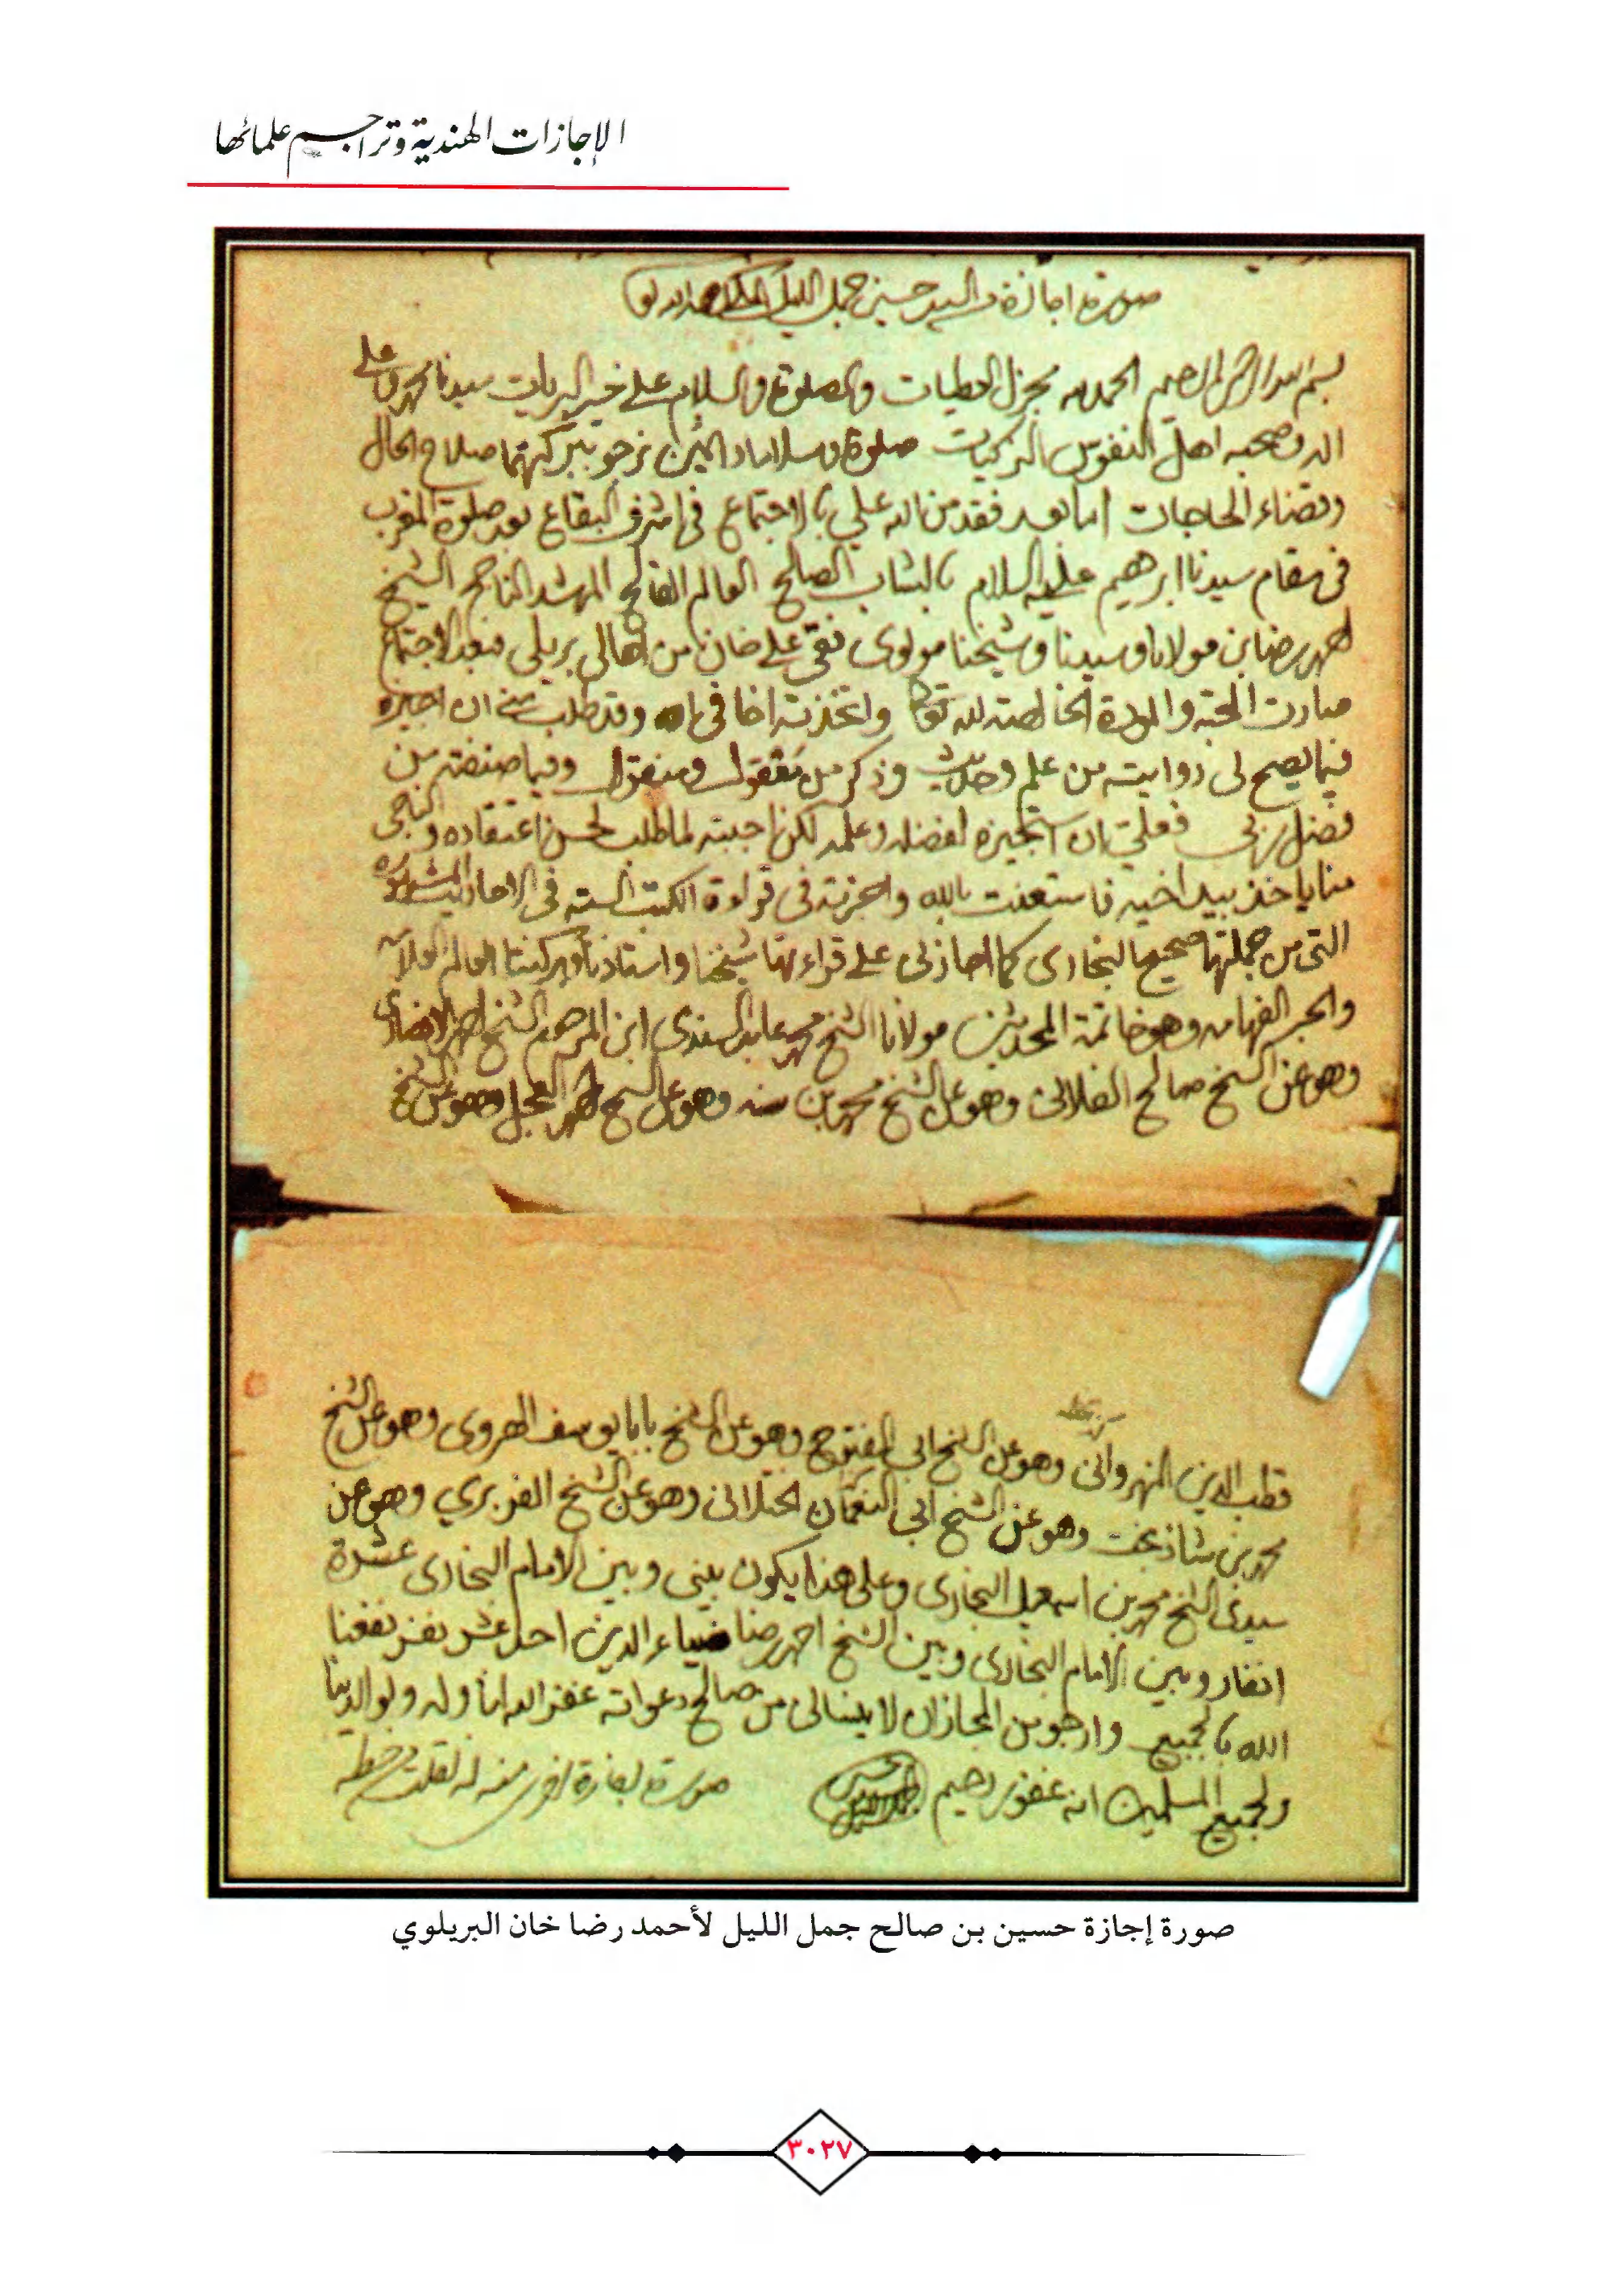 الإجازات الهندية وتراجم علمائها
صورة اجازة السيد حسين جمل الليل المكي
بسم الله الرحمن الرحيم الحمد لله مجزل العطيات والصلوة والسلام على خير البريات سيدنا محمد وعلى
اله وصحبه اهل النفوس الزكيات صلوة وسلاما دائمين نرجو ببركتهما صلاح الحال
وقضاء الحاجات اما بعد فقد من الله علي بالاجتماع في اشرف البقاع بعد صلوة المغرب
في مقام سيدنا ابرهيم عليه السلام بالشاب الصالح العالم الفالح المرشد الناجح الشيخ
احمد رضا بن مولانا وسيدنا وشيخنا مولوى نقى على خان من اهالى بريلى فبعد الاجتماع
صارت المحبة والمودة الخالصة لله تعالى واتخذته اخا في الله وقد طلب مني ان اجيزه
فيما يصح لى روايته من علم وحديث وذكر من معقول ومنقول وفيما صنفته من
فضل ربى فقلت ان استجيزه لفضله وعلمه لكن اجبته لما طلب لحسن اعتقاده والناجى
منا ياخذ بيد اخيه فاستعنت بالله واجزته في قراءة الكتب الستة في الاحاديث المشهورة
التى من جملتها صحيح البخارى كما اجازنى على قراءتها شيخنا واستاذنا وبركتنا العالم العلامه
والحبر الفهامه وهو خاتمة المحدثين مولانا الشيخ محمد عابد السندى ابن المرحوم الشيخ احمد الانصارى
وهو عن الشيخ صالح الفلانى وهو عن الشيخ محمد بن سنه وهو عن الشيخ احمد العجل وهو عن الشيخ
قطب الدين النهروانى وهو عن الشيخ ابى الفتوح وهو عن الشيخ بابا يوسف الهروى وهو عن الشيخ
محمد بن شاذ بخت وهو عن الشيخ ابى النعمان الختلانى وهو عن الشيخ الفربري وهو عن
سيدى الشيخ محمد بن اسمعيل البخارى وعلى هذا يكون بينى وبين الامام البخارى عشرة
انفار وبين الامام البخارى وبين الشيخ احمد رضا ضياء الدين احد عشر نفر نفعنا
الله بالجميع وارجو من المجاز ان لا ينسانى من صالح دعواته غفر الله لنا وله ولوالدينا
ولجميع المسلمين انه غفور رحيم
صورة إجازة حسين بن صالح جمل الليل لأحمد رضا خان البريلوي
٣٠٢٧